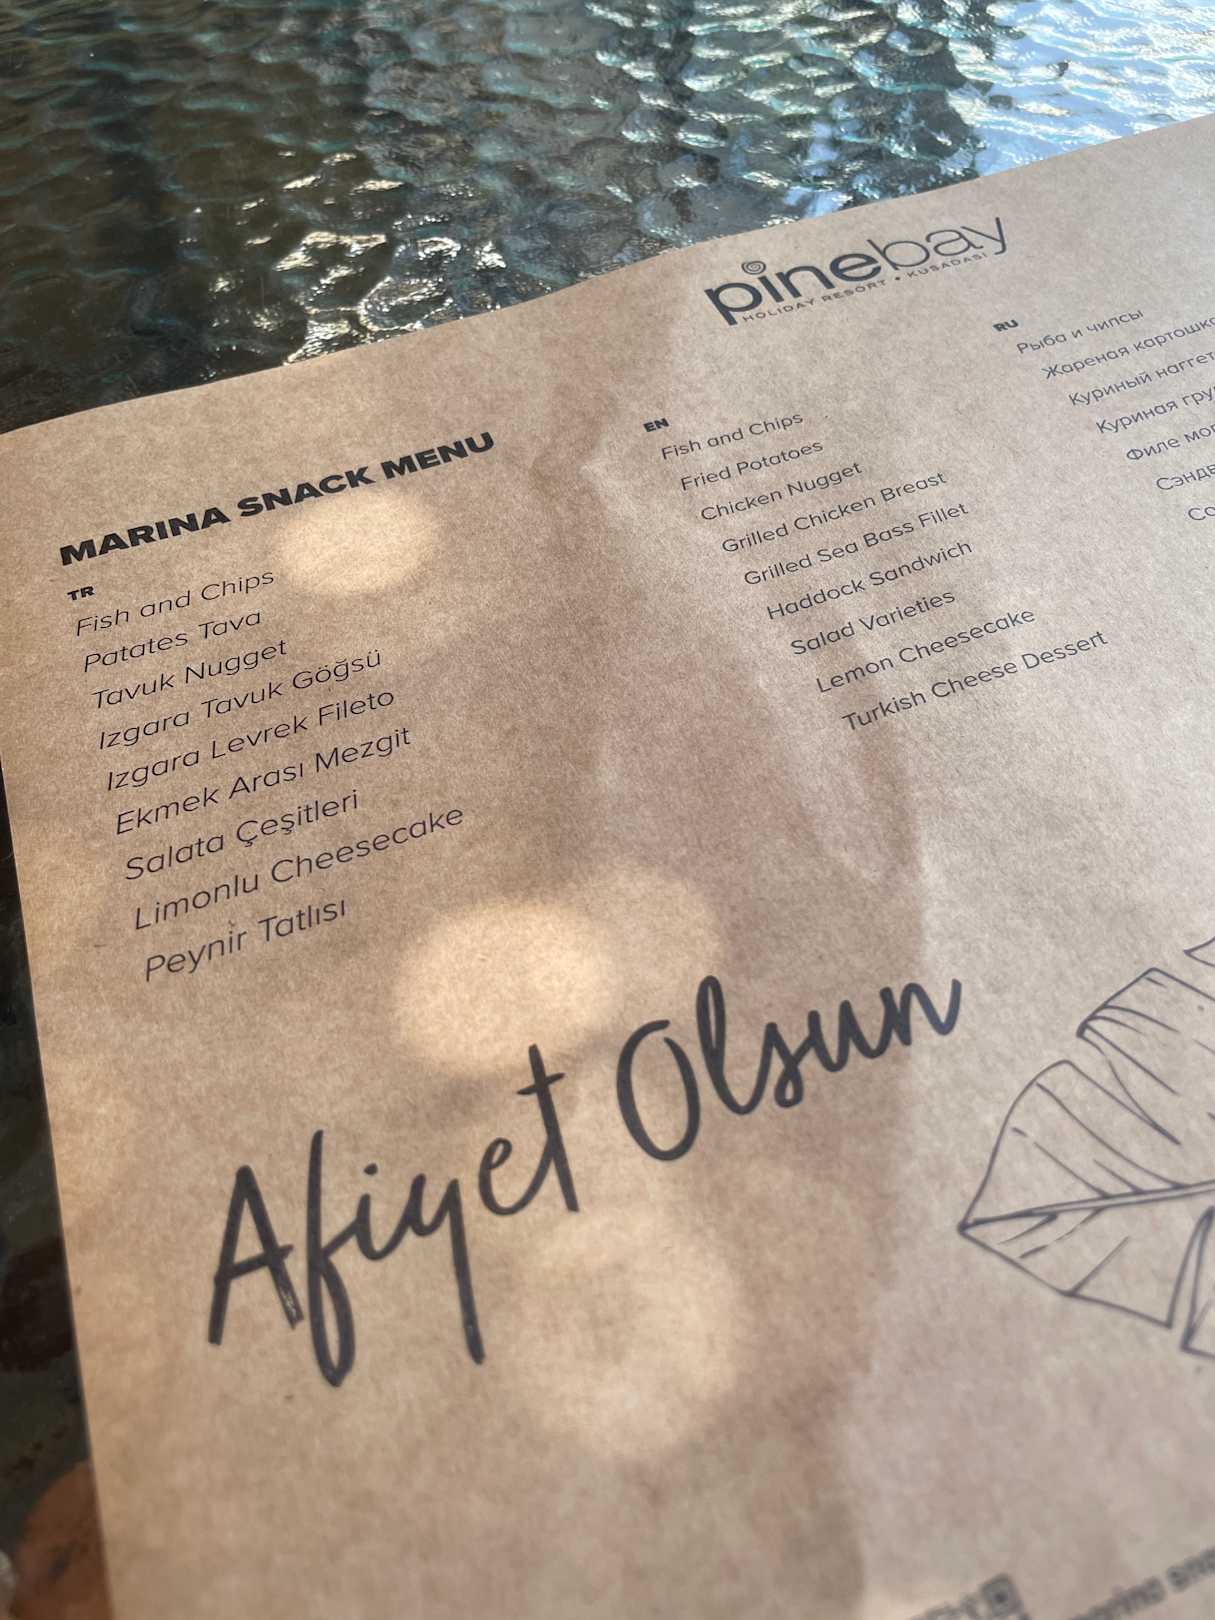 pinebay
HOLIDAY RESORT • KUSADASI
MARINA SNACK MENU
TR
Fish and Chips
Patates Tava
Tavuk Nugget
Izgara Tavuk Göğsü
Izgara Levrek Fileto
Ekmek Arası Mezgit
Salata Çeşitleri
Limonlu Cheesecake
Peynir Tatlısı
EN
Fish and Chips
Fried Potatoes
Chicken Nugget
Grilled Chicken Breast
Grilled Sea Bass Fillet
Haddock Sandwich
Salad Varieties
Lemon Cheesecake
Turkish Cheese Dessert
RU
Рыба и чипсы
Жареная картошка
Куриный
Куриная
Филе
Afiyet Olsun